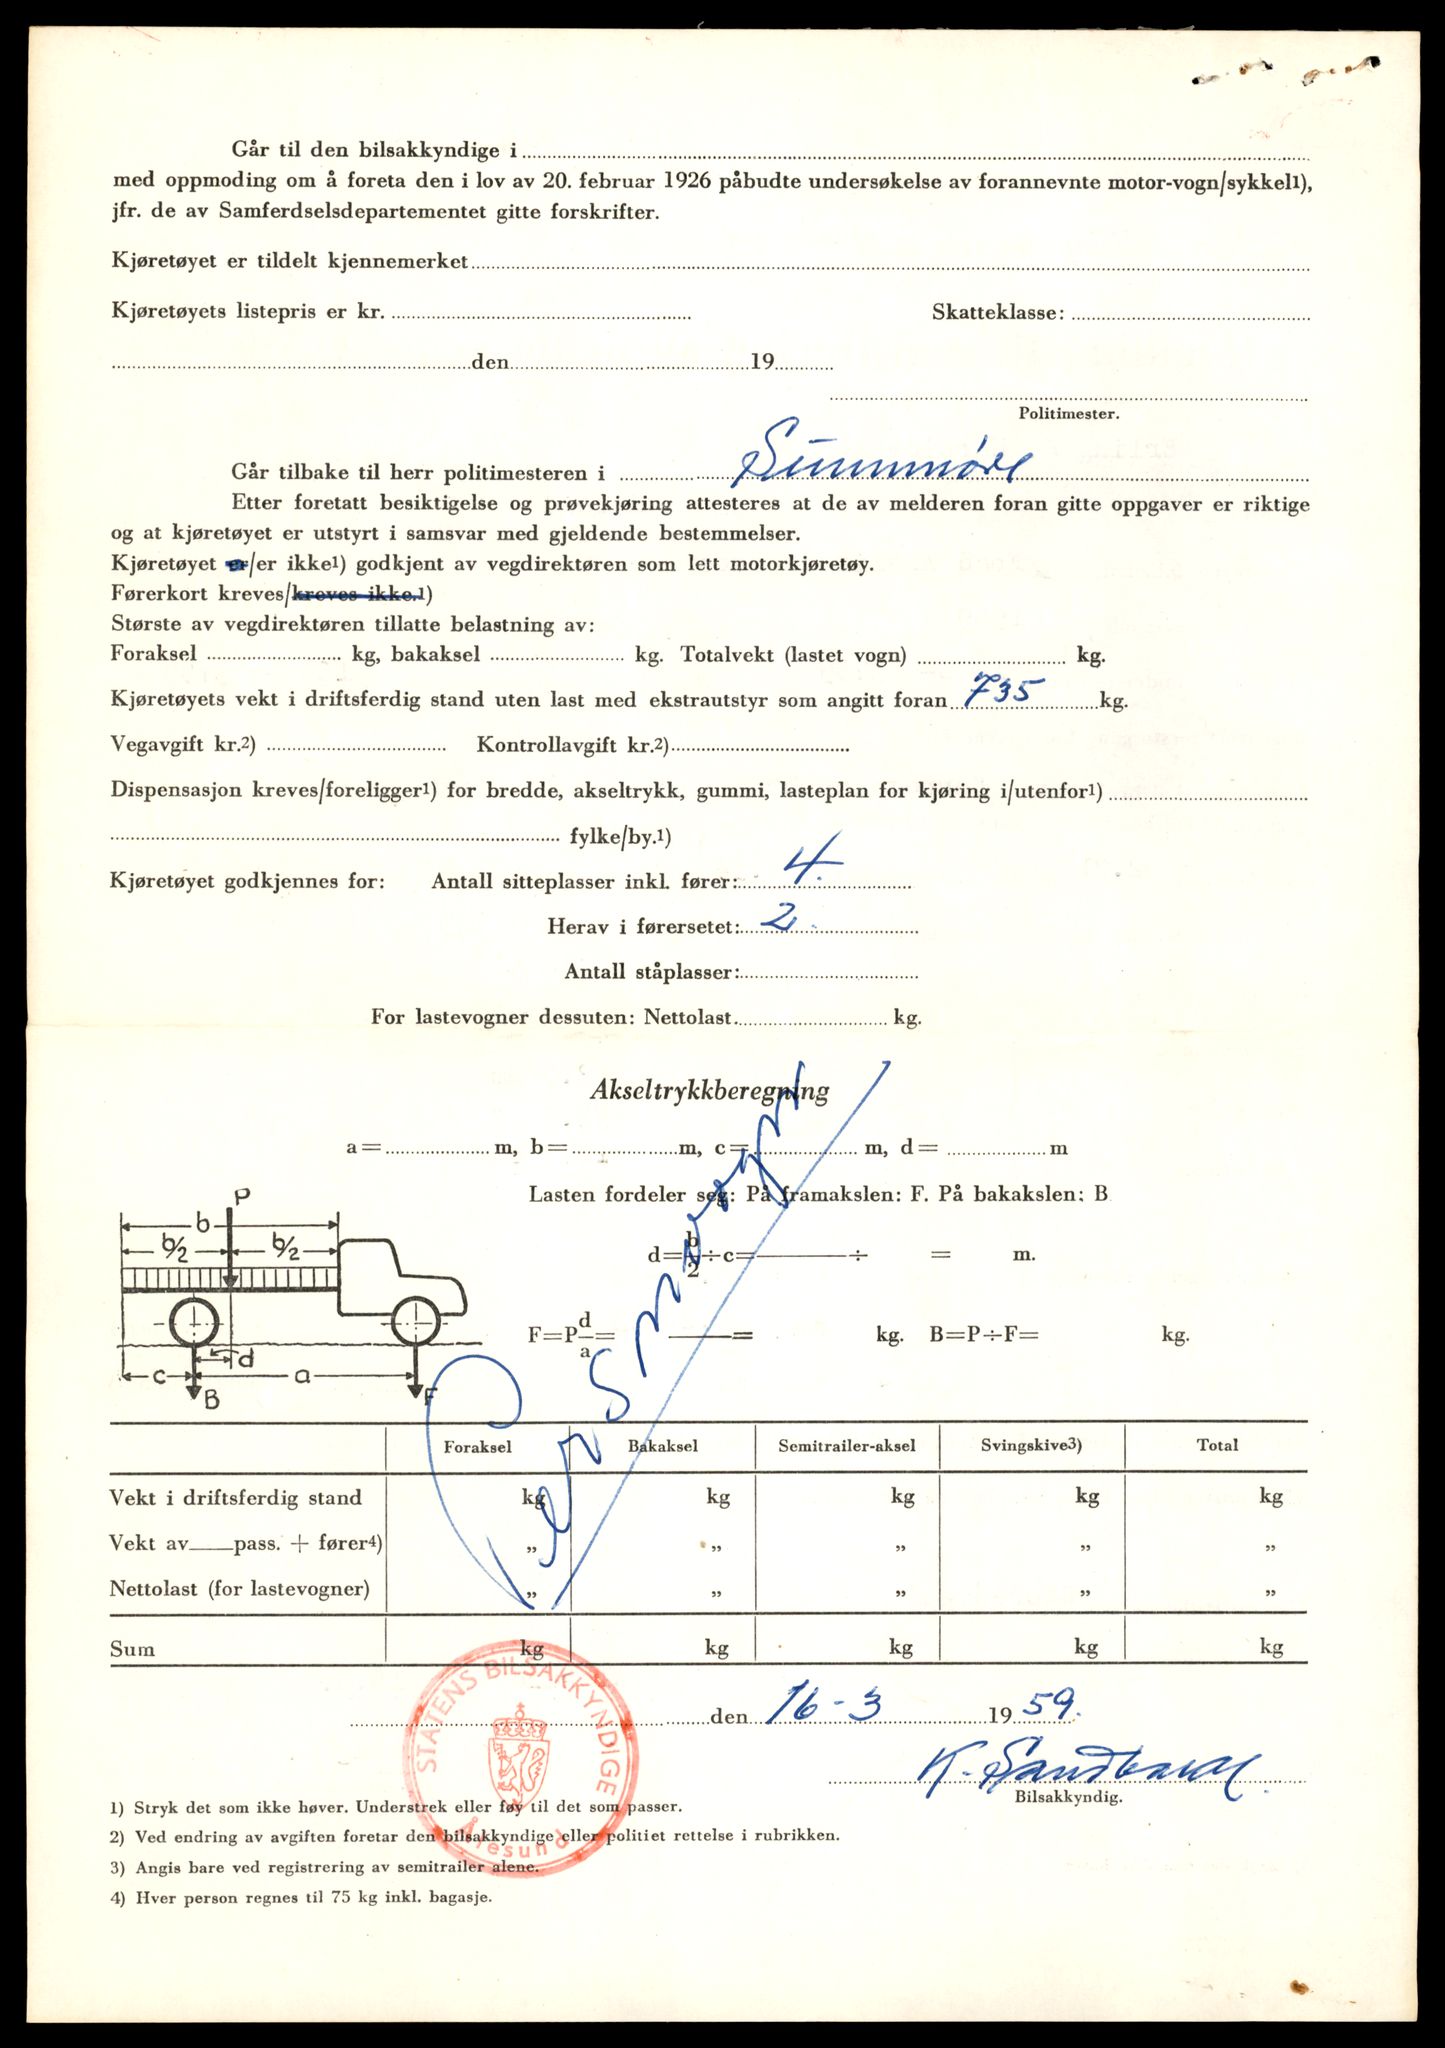 Går til den bilsakkyndige i
med oppmoding om å foreta den i lov av 20. februar 1926 påbudte undersøkelse av forannevnte motor-vogn/sykkel1),
jfr. de av Samferdselsdepartementet gitte forskrifter.
Kjøretøyet er tildelt kjennemerket
Kjøretøyets listepris er kr. Skatteklasse:
den 19
Politimester.
Går tilbake til herr politimesteren i Sunnmöre
Etter foretatt besiktigelse og prøvekjøring attesteres at de av melderen foran gitte oppgaver er riktige
og at kjøretøyet er utstyrt i samsvar med gjeldende bestemmelser.
Kjøretøyet er/er ikke1) godkjent av vegdirektøren som lett motorkjøretøy.
Førerkort kreves/kreves ikke.1)
Største av vegdirektøren tillatte belastning av:
Foraksel kg, bakaksel kg. Totalvekt (lastet vogn) kg.
Kjøretøyets vekt i driftsferdig stand uten last med ekstrautstyr som angitt foran 735 kg.
Vegavgift kr.2) Kontrollavgift kr.2)
Dispensasjon kreves/foreligger1) for bredde, akseltrykk, gummi, lasteplan for kjøring i/utenfor1)
fylke/by.1)
Kjøretøyet godkjennes for: Antall sitteplasser inkl. fører: 4.
Herav i førersetet: 2.
Antall ståplasser:
For lastevogner dessuten: Nettolast. kg.
Akseltrykkberegning
a = m, b = m, c = m, d = m
Lasten fordeler seg: På framakslen: F. På bakakslen: B
P
b
b/2 b/2
d = b/2 ÷ c = ÷ = m.
F = P d/a = = kg. B = P ÷ F = kg.
c d a
B F
Personvogn
Foraksel Bakaksel Semitrailer-aksel Svingskive3) Total
Vekt i driftsferdig stand kg kg kg kg kg
Vekt av pass. + fører4) „ „ „ „ „
Nettolast (for lastevogner) „ „ „ „ „
Sum kg kg kg kg kg
STATENS BILSAKKYNDIGE
Ålesund
den 16-3 1959.
K. Sandbakk
Bilsakkyndig.
1) Stryk det som ikke høver. Understrek eller føy til det som passer.
2) Ved endring av avgiften foretar den bilsakkyndige eller politiet rettelse i rubrikken.
3) Angis bare ved registrering av semitrailer alene.
4) Hver person regnes til 75 kg inkl. bagasje.